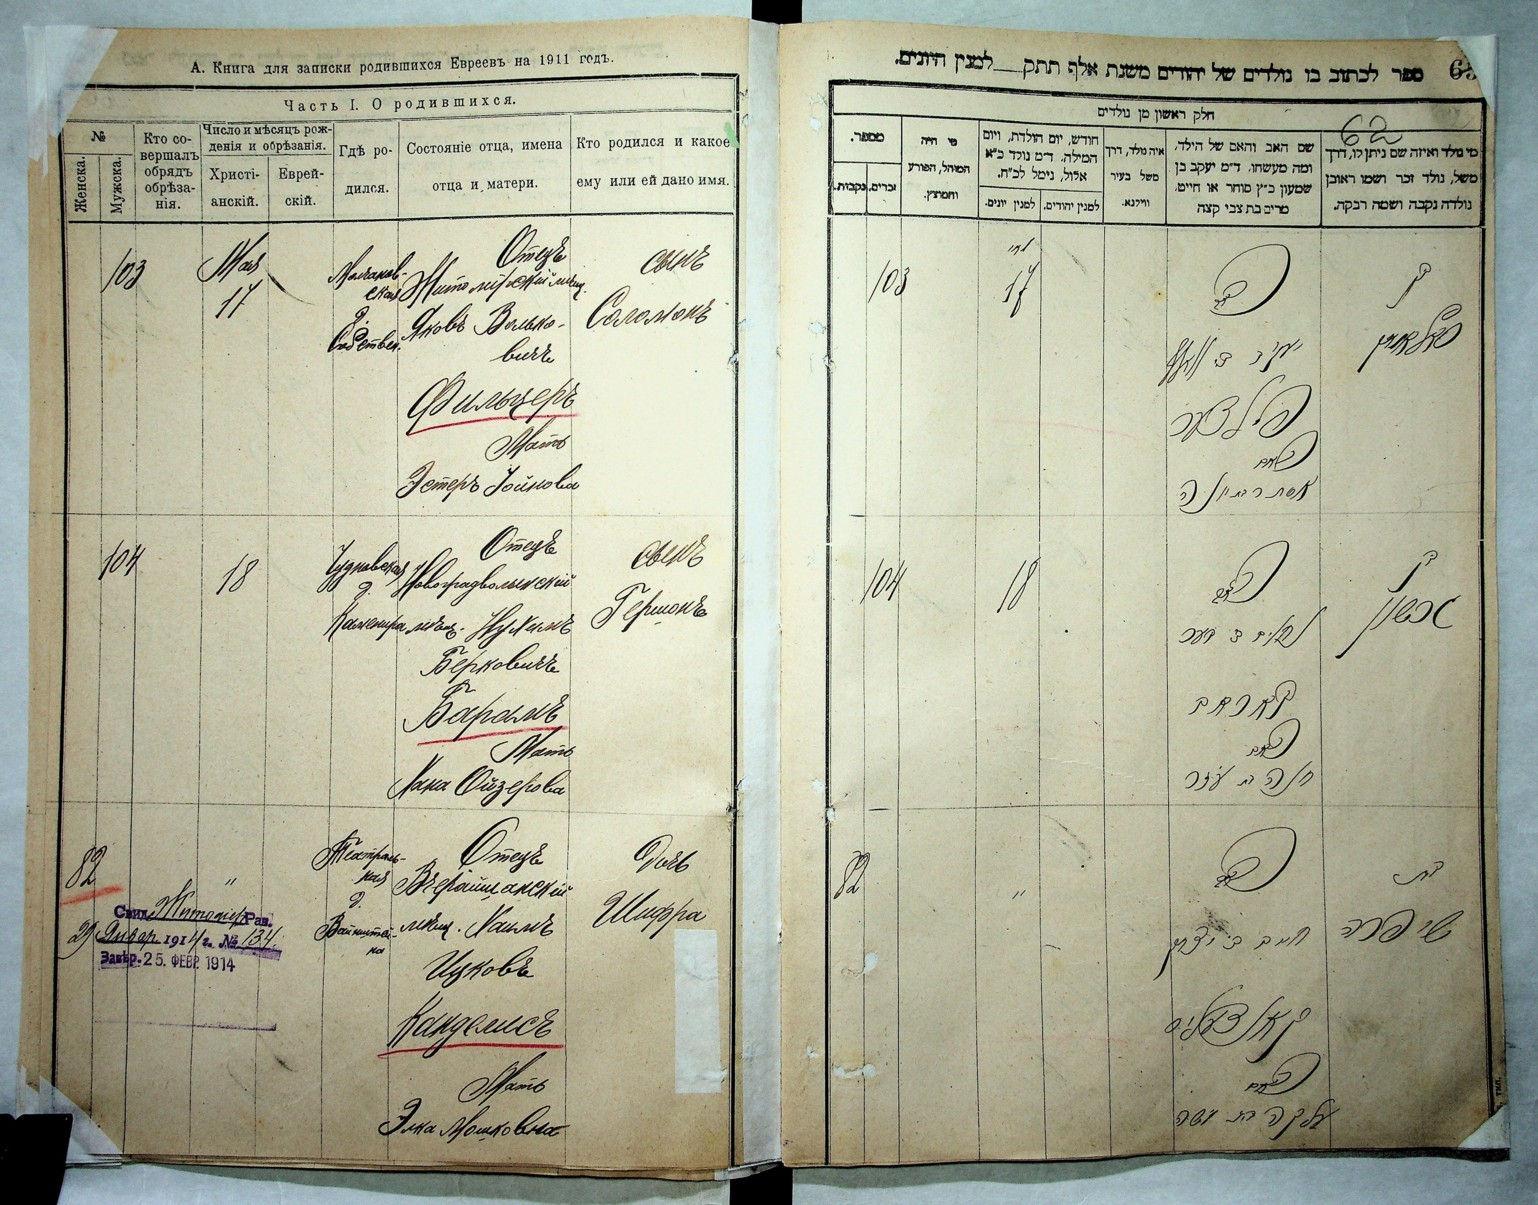 А. Книга для записки родившихся Евреевъ на 1911 годъ.
Часть I. О родившихся.
№
Женска.
Мужска.
Кто со-
вершалъ
обрядъ
обрѣза-
нія.
Число и мѣсяцъ рож-
денія и обрѣзанія.
Христі-
анскій.
Еврей-
скій.
Гдѣ ро-
дился.
Состояніе отца, имена
отца и матери.
Кто родился и какое
ему или ей дано имя.
103
Мая
17
Отецъ
Житомірскій мѣщ.
Яковъ Волько-
вичъ
Фильцеръ
Мать
Эстеръ Іойнова
сынъ
Соломонъ
104
18
Чудновская
д.
Отецъ
Новоградволынскій
мѣщ. Нухимъ
Берковичъ
Барамъ
Мать
Хана Ойзерова
сынъ
Гершонъ
82
"
Театраль-
ная
д.
Вайнштей-
на
Отецъ
мѣщ. Хаимъ
Ицковъ
Канделисъ
Мать
Элка Мошковна
дочь
Шифра
Свид. Житомір Рав.
29 Январ 1914 г. № 134.
Завѣр. 25. ФЕВР. 1914
ספר לכתוב בו נולדים של יהודים משנת אלף תתק__למנין היונים.
62
חלק ראשון מן נולדים
מי נולד ואיזה שם ניתן לו, דרך
משל, נולד זכר ושמו ראובן
נולדה נקבה ושמה רבקה.
שם האב והאם של הילד,
ומה מעשהו. ד״מ יעקב בן
שמעון כ״ץ סוחר או חייט,
מרים בת צבי קצה
איה נולד, דרך
משל בעיר
ווילנא.
חודש, יום הולדת, ויום
המילה. ד״מ נולד כ״א
אלול, נימל לכ״ח.
למנין יהודים.
למנין יונים.
מי היה
המוהל, הפורע
והמוצץ.
מספר.
זכרים.
נקבות.
103
מאי
17
בן
פילצער
104
18
בן
גרשון
82
"
בת
שיפרה